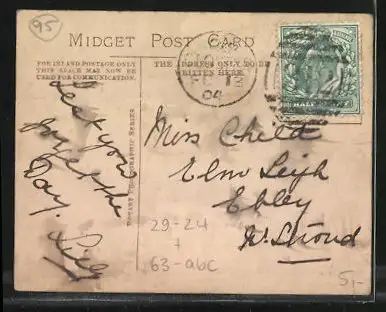 95
MIDGET POST CARD
FOR INLAND POSTAGE ONLY
THIS SPACE MAY NOW BE
USED FOR COMMUNICATION.
THE ADDRESS ONLY TO BE
WRITTEN HERE.
04
HALFPENNY
Lest you
forget the
Day.
Lily
ROTARY PHOTOGRAPHIC SERIES
Miss Child
Elm Leigh
Ebley
Nr. Stroud
29-24
+
63-abc
5,-